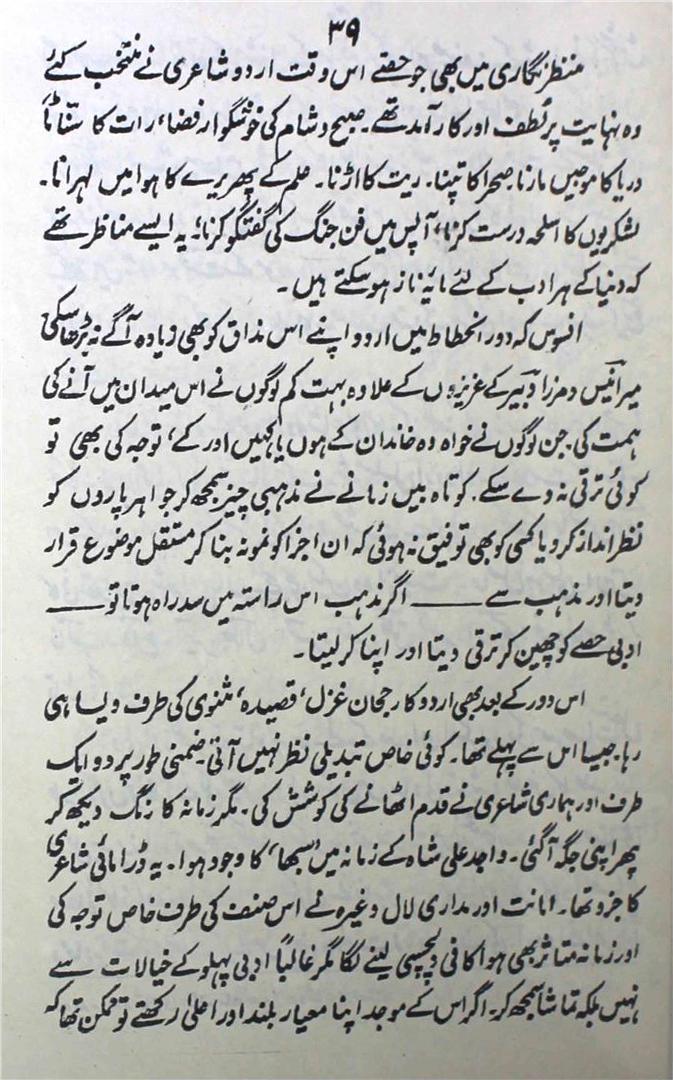 ۳۹
منظر نگاری میں بھی جو حصّے اس وقت اردو شاعری نے منتخب کئے
وہ نہایت پر لطف اور کار آمد تھے۔ صبح و شام کی خوشگوار فضا، رات کا سنّاٹا
دریا کا موجیں مارنا۔ صحرا کا تپنا۔ ریت کا اڑنا۔ علم کے پھریرے کا ہوا میں لہرانا۔
لشکریوں کا اسلحہ درست کرنا، آپس میں فن جنگ کی گفتگو کرنا، یہ ایسے مناظر تھے
کہ دنیا کے ہر ادب کے لئے مایۂ ناز ہوسکتے ہیں۔
افسوس کہ دور انحطاط میں اردو اپنے اس مذاق کو بھی زیادہ آگے نہ بڑھا سکی
میر انیسؔ و مرزا دبیرؔ کے عزیزوں کے علاوہ بہت کم لوگوں نے اس میدان میں آنے کی
ہمت کی۔ جن لوگوں نے خواہ وہ خاندان کے ہوں یا کہیں اور کے، توجہ کی بھی تو
کوئی ترقی نہ دے سکے۔ کوتاہ بیں زمانے نے مذہبی چیز سمجھ کر جواہر پاروں کو
نظر انداز کر دیا کسی کو بھی توفیق نہ ہوئی کہ ان اجزا کو نمونہ بنا کر مستقل موضوع قرار
دیتا اور مذہب سے —— اگر مذہب اس راستہ میں سدراہ ہوتا تو ——
ادبی حصے کو چھین کر ترقی دیتا اور اپنا کر لیتا۔
اس دور کے بعد بھی اردو کا رجحان غزل، قصیدہ، مثنوی کی طرف ویسا ہی
رہا۔ جیسا اس سے پہلے تھا۔ کوئی خاص تبدیلی نظر نہیں آتی۔ ضمنی طور پر دو ایک
طرف اور ہماری شاعری نے قدم اٹھانے کی کوشش کی۔ مگر زمانہ کا رنگ دیکھ کر
پھر اپنی جگہ آگئی۔ واجد علی شاہ کے زمانہ میں 'سبھا' کا وجود ہوا۔ یہ ڈرامائی شاعری
کا جزو تھا۔ امانت اور مداری لال وغیرہ نے اس صنف کی طرف خاص توجہ کی
اور زمانہ متاثر بھی ہوا کافی دلچسپی لینے لگا مگر غالباً ادبی پہلو کے خیالات سے
نہیں بلکہ تماشا سمجھ کر۔ اگر اس کے موجد اپنا معیار بلند اور اعلیٰ رکھتے تو ممکن تھا کہ